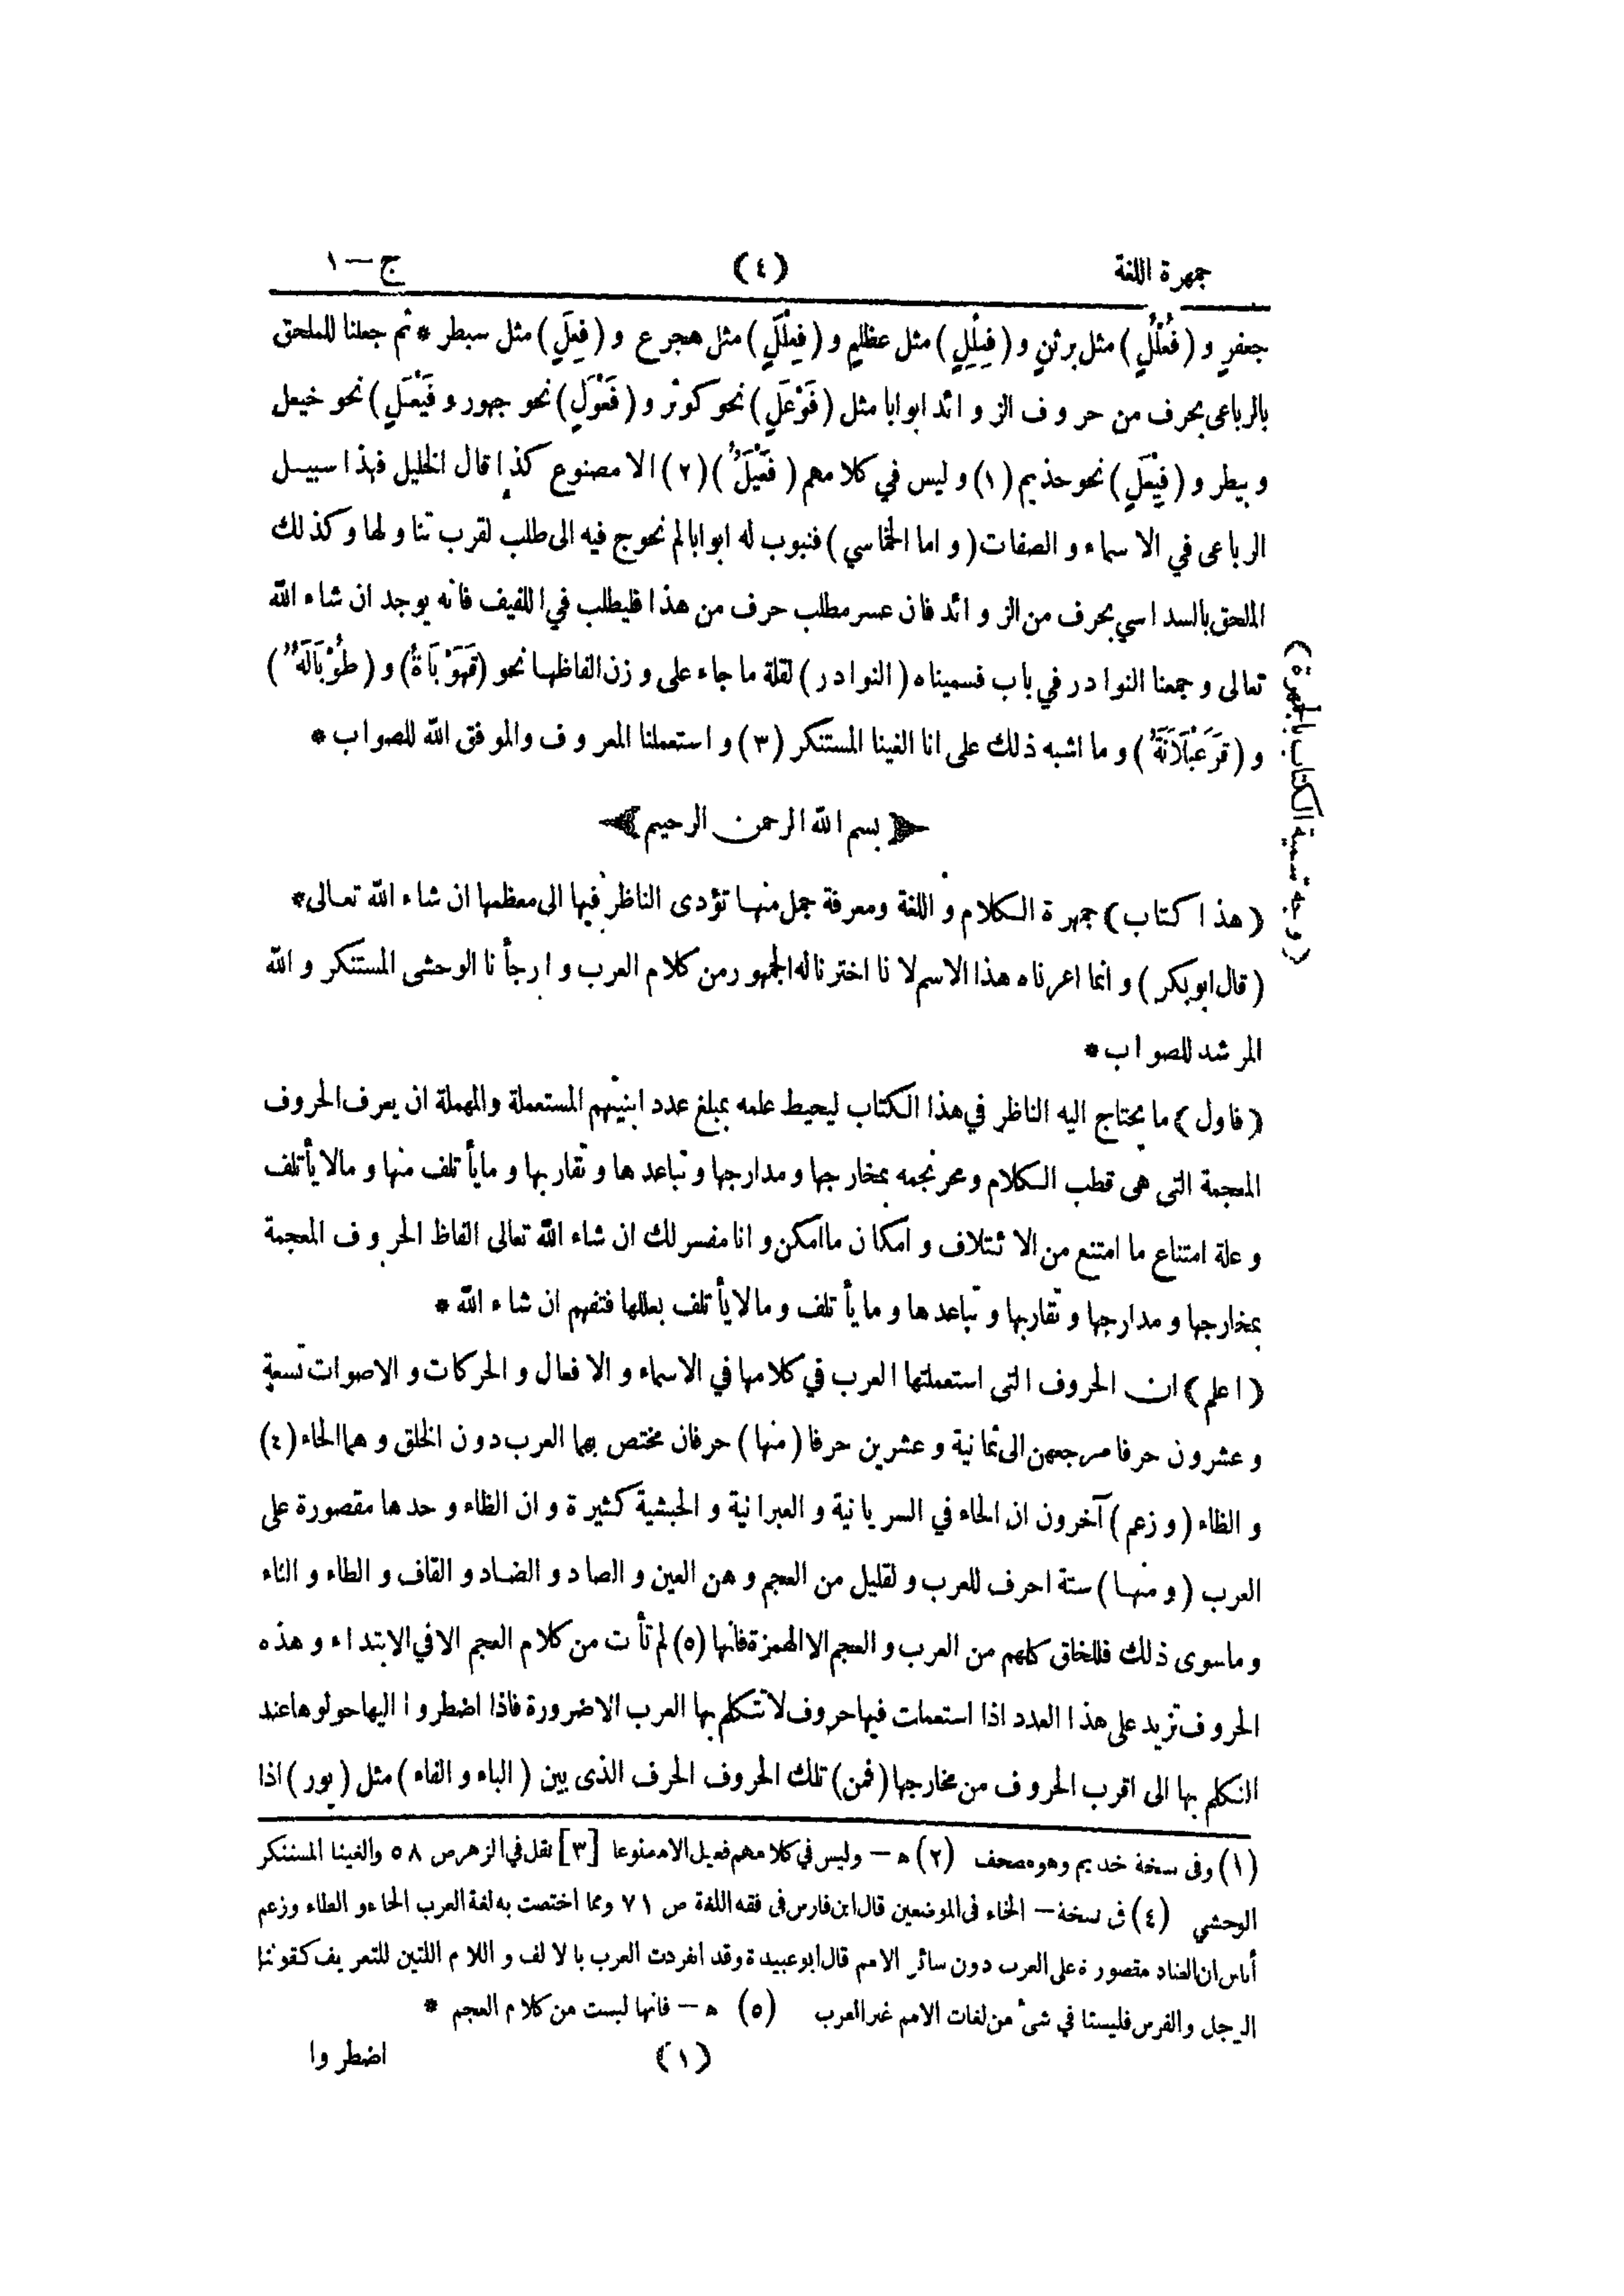 جمهرة اللغة (٤) ج — ١
جعفرٍ و (فُعْلُلٍ) مثل برثنٍ و (فِعْلِلٍ) مثل عظلمٍ و (فِعْلَلٍ) مثل هجرع و (فِعَلٍّ) مثل سبطر * ثم جعلنا للملحق
بالرباعى بحرف من حروف الزوائد ابوابا مثل (فَوْعَلٍ) نحو كوثر و (فَعْوَلٍ) نحو جهور و فَيْعَلٍ) نحو خيعل
و بيطر و (فِيْعَلٍ) نحو حذيم (١) و ليس في كلامهم (فَعْيَلٌ) (٢) الا مصنوع كذا قال الخليل فهذا سبيل
الرباعى في الاسماء و الصفات (و اما الخماسي) فنبوب له ابوابا لم نحوج فيه الى طلب لقرب تناولها و كذلك
الملحق بالسداسي بحرف من الزوائد فان عسر مطلب حرف من هذا فليطلب في اللفيف فانه يوجد ان شاء الله
تعالى و جمعنا النوادر في باب فسميناه (النوادر) لقلة ما جاء على وزن الفاظها نحو (قَهَوْبَاةٌ) و (طُوْبَالَةٌ)
و (قَرَعْبَلَانَةٌ) و ما اشبه ذلك على انا الغينا المستنكر (٣) و استعملنا المعروف والموفق الله للصواب *
(وجه تسمية الكتاب بالجمهرة)
بسم الله الرحمن الرحيم
(هذا كتاب) جمهرة الكلام و اللغة ومعرفة جمل منها تؤدى الناظر فيها الى معظمها ان شاء الله تعالى *
(قال ابوبكر) و انما اعرناه هذا الاسم لانا اخترنا له الجمهور من كلام العرب و ارجأنا الوحشى المستنكر و الله
المرشد للصواب *
(فاول) ما يحتاج اليه الناظر في هذا الكتاب ليحيط علمه بمبلغ عدد ابنيتهم المستعملة والمهملة ان يعرف الحروف
المعجمة التى هى قطب الكلام ومحرنجمه بمخارجها و مدارجها و تباعدها و تقاربها و مايأتلف منها و مالايأتلف
و علة امتناع ما امتنع من الائتلاف و امكان ماامكن و انا مفسر لك ان شاء الله تعالى الفاظ الحروف المعجمة
بمخارجها و مدارجها و تقاربها و تباعدها و ما يأتلف و مالايأتلف بعللها فتفهم ان شاء الله *
(اعلم) ان الحروف التى استعملتها العرب في كلامها في الاسماء و الافعال و الحركات و الاصوات تسعة
و عشرون حرفا مرجعهن الى ثمانية و عشرين حرفا (منها) حرفان مختص بهما العرب دون الخلق و هما الحاء (٤)
و الظاء (و زعم) آخرون ان الحاء في السريانية و العبرانية و الحبشية كثيرة و ان الظاء وحدها مقصورة على
العرب (و منها) ستة احرف للعرب و لقليل من العجم و هن العين و الصاد و الضاد و القاف و الطاء و الثاء
و ماسوى ذلك فللخلق كلهم من العرب و العجم الا الهمزة فانها (٥) لم تأت من كلام العجم الا في الابتداء و هذه
الحروف تزيد على هذا العدد اذا استعملت فيها حروف لا تتكلم بها العرب الا ضرورة فاذا اضطروا اليها حولوها عند
التكلم بها الى اقرب الحروف من مخارجها (فمن) تلك الحروف الحرف الذى بين (الباء و الفاء) مثل (پور) اذا
(١) وفى نسخة خديم وهو مصحف (٢) ه — وليس في كلامهم فعيل الا مصنوعا [٣] نقل في الزهر ص ٥٨ والغينا المستنكر
الوحشي (٤) فى نسخة — الخاء فى الموضعين قال ابن فارس فى فقه اللغة ص ٧١ ومما اختصت به لغة العرب الحاء و الظاء وزعم
أناس ان الضاد مقصورة على العرب دون سائر الامم قال ابو عبيدة وقد انفردت العرب بالالف و اللام اللتين للتعريف كقولنا
الرجل والفرس فليستا في شئ من لغات الامم غير العرب (٥) ه — فانها ليست من كلام العجم *
(١) اضطروا